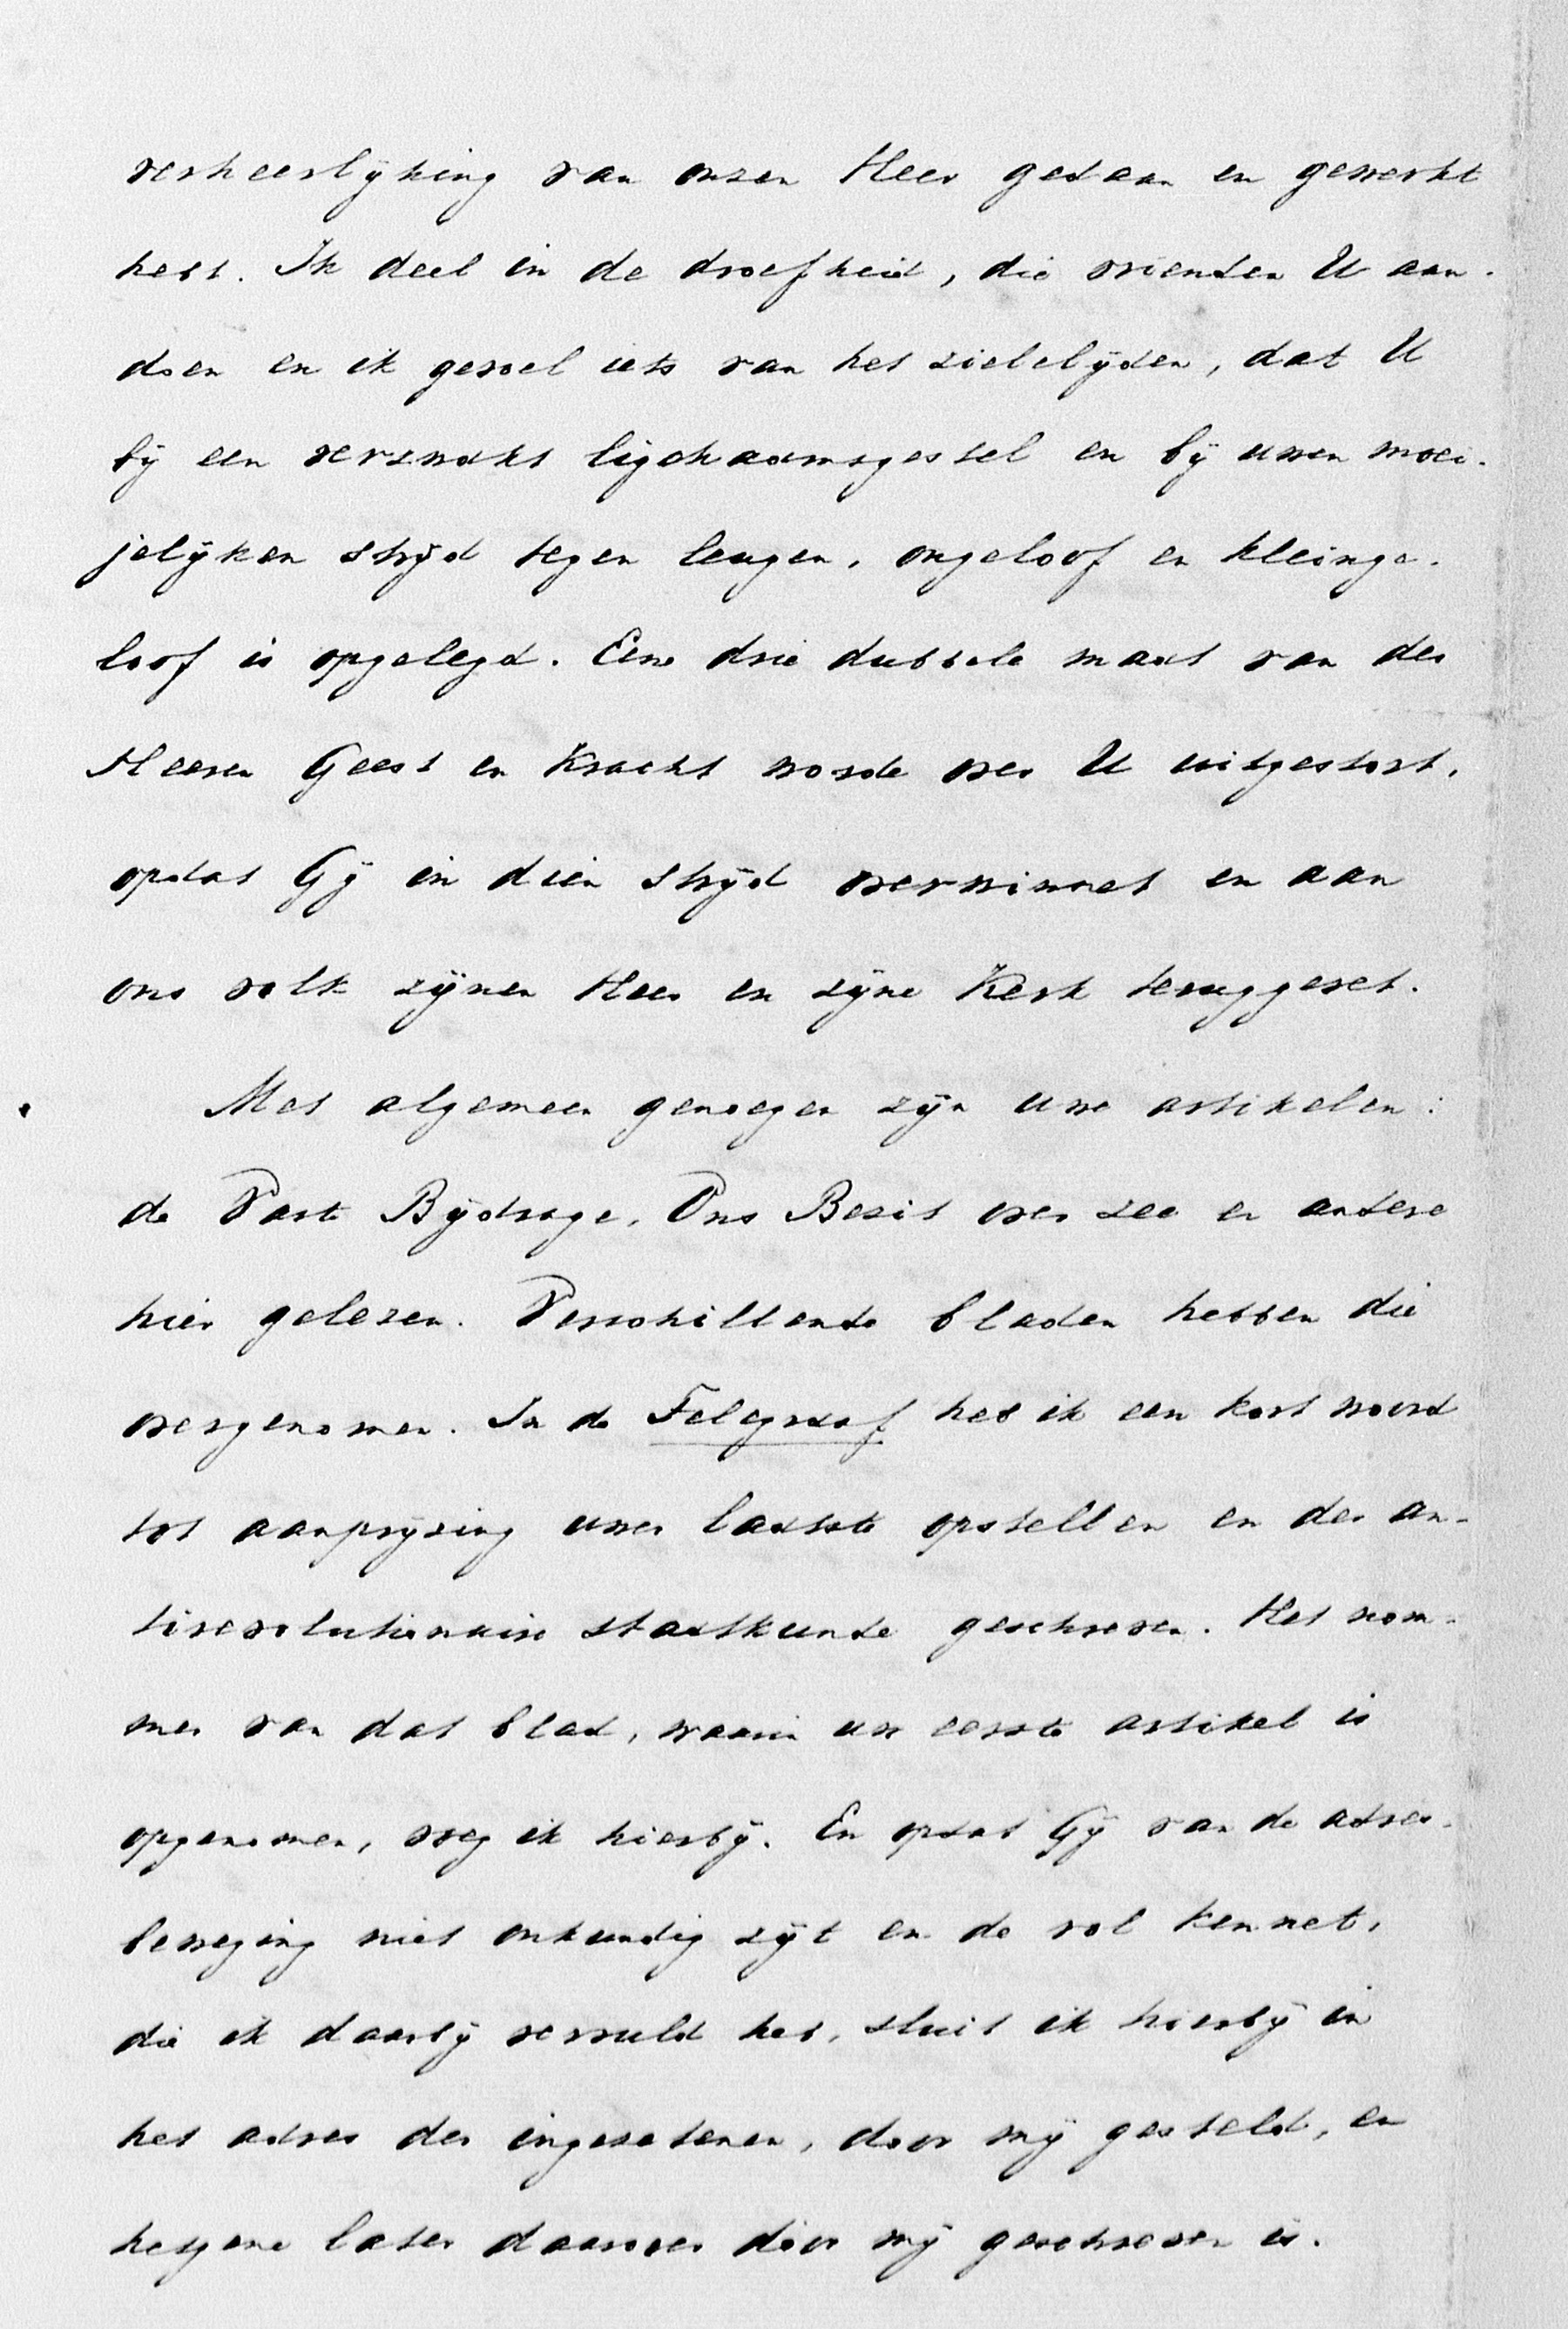 verheerlijking van onzen Heer gedaan en gewerkt
hebt. Ik deel in de droefheid, die vrienden U aan-
doen en ik gevoel iets van het zielelijden, dat U
bij een verzwakt ligchaamsgestel en bij uwen moei-
jelijken strijd tegen leugen, ongeloof en kleinge-
loof is opgelegd. Eene drie dubbele maat van des
Heeren Geest en Kracht worde over U uitgestort,
opdat Gij in dien strijd overwinnet en aan
ons volk zijnen Heer en zijne Kerk teruggevet.
Met algemeen genoegen zijn uwe artikelen:
de Vaste Bijdrage, Ons Bezit over zee en andere
hier gelezen. Verschillende bladen hebben die
overgenomen. In de Telegraaf heb ik een kort woord
tot aanprijzing uwer laatste opstellen en der an-
tirevolutionaire staatkunde geschreven. Het nom-
mer van dat blad, waarin uw eerste artikel is
opgenomen, voeg ik hierbij. En opdat Gij van de adres-
beweging niet onkundig zijt en de rol kennet,
die ik daarbij vervuld heb, sluit ik hierbij in
het adres der ingezetenen, door mij gesteld, en
hetgene later daarover door mij geschreven is.